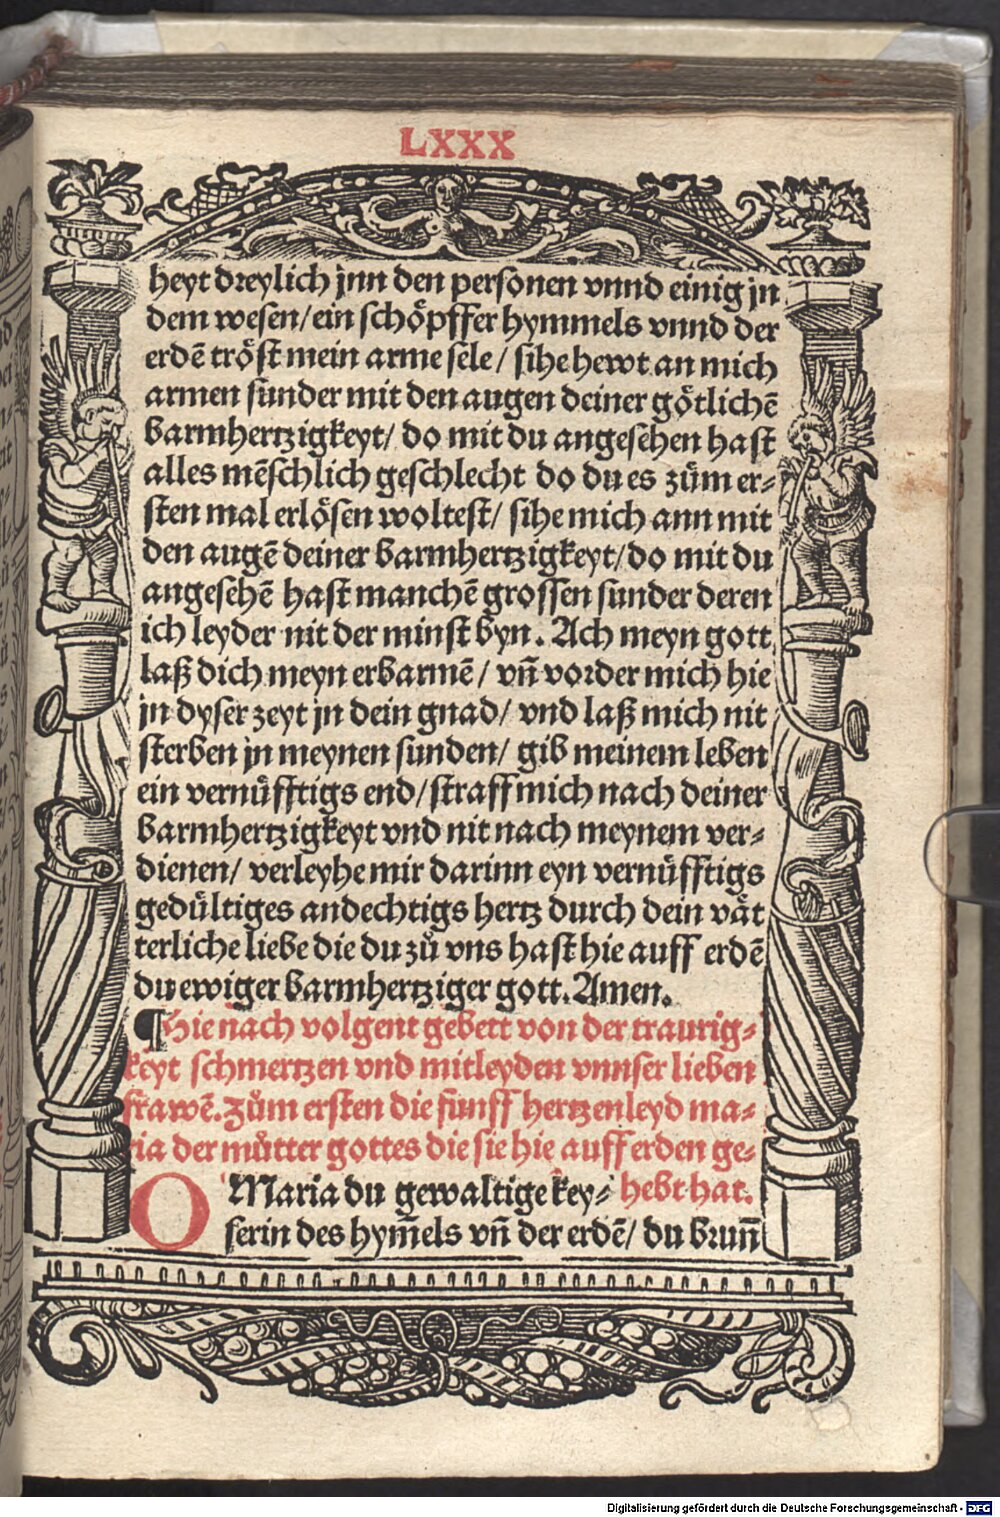 LXXX
heyt dreylich jnn den personen vnnd einig jn
dem wesen/ein schöpffer hymmels vnnd der
erdē tröst mein arme sele/ sihe hewt an mich
armen sunder mit den augen deiner götlichē
barmhertzigkeyt/ do mit du angesehen hast
alles mēschlich geschlecht do du es zům er⸗
sten mal erlösen woltest/ sihe mich ann mit
den augē deiner barmhertzigkeyt/do mit du
angesehē hast manchē grossen sunder deren
ich leyder nit der minst byn. Ach meyn gott
laß dich meyn erbarmē/ vn̄ vorder mich hie
jn dyser zeyt jn dein gnad/ vnd laß mich nit
sterben jn meynen sunden/ gib meinem leben
ein vernůfftigs end/straff mich nach deiner
barmhertzigkeyt vnd nit nach meynem ver⸗
dienen/ verleyhe mir darinn eyn vernůfftigs
gedůltiges andechtigs hertz durch dein vät
terliche liebe die du zů vns hast hie auff erdē
du ewiger barmhertziger gott. Amen.
¶Hie nach volgent gebett von der traurig⸗
keyt schmertzen vnd mitleyden vnnser lieben
frawē. Zům ersten die fünff hertzenleyd ma⸗
ria der můtter gottes die sie hie auff erden ge⸗
hebt hat.
O Maria du gewaltige key⸗
serin des hym̄els vn̄ der erdē/ du brun̄
Digitalisierung gefördert durch die Deutsche Forschungsgemeinschaft - DFG